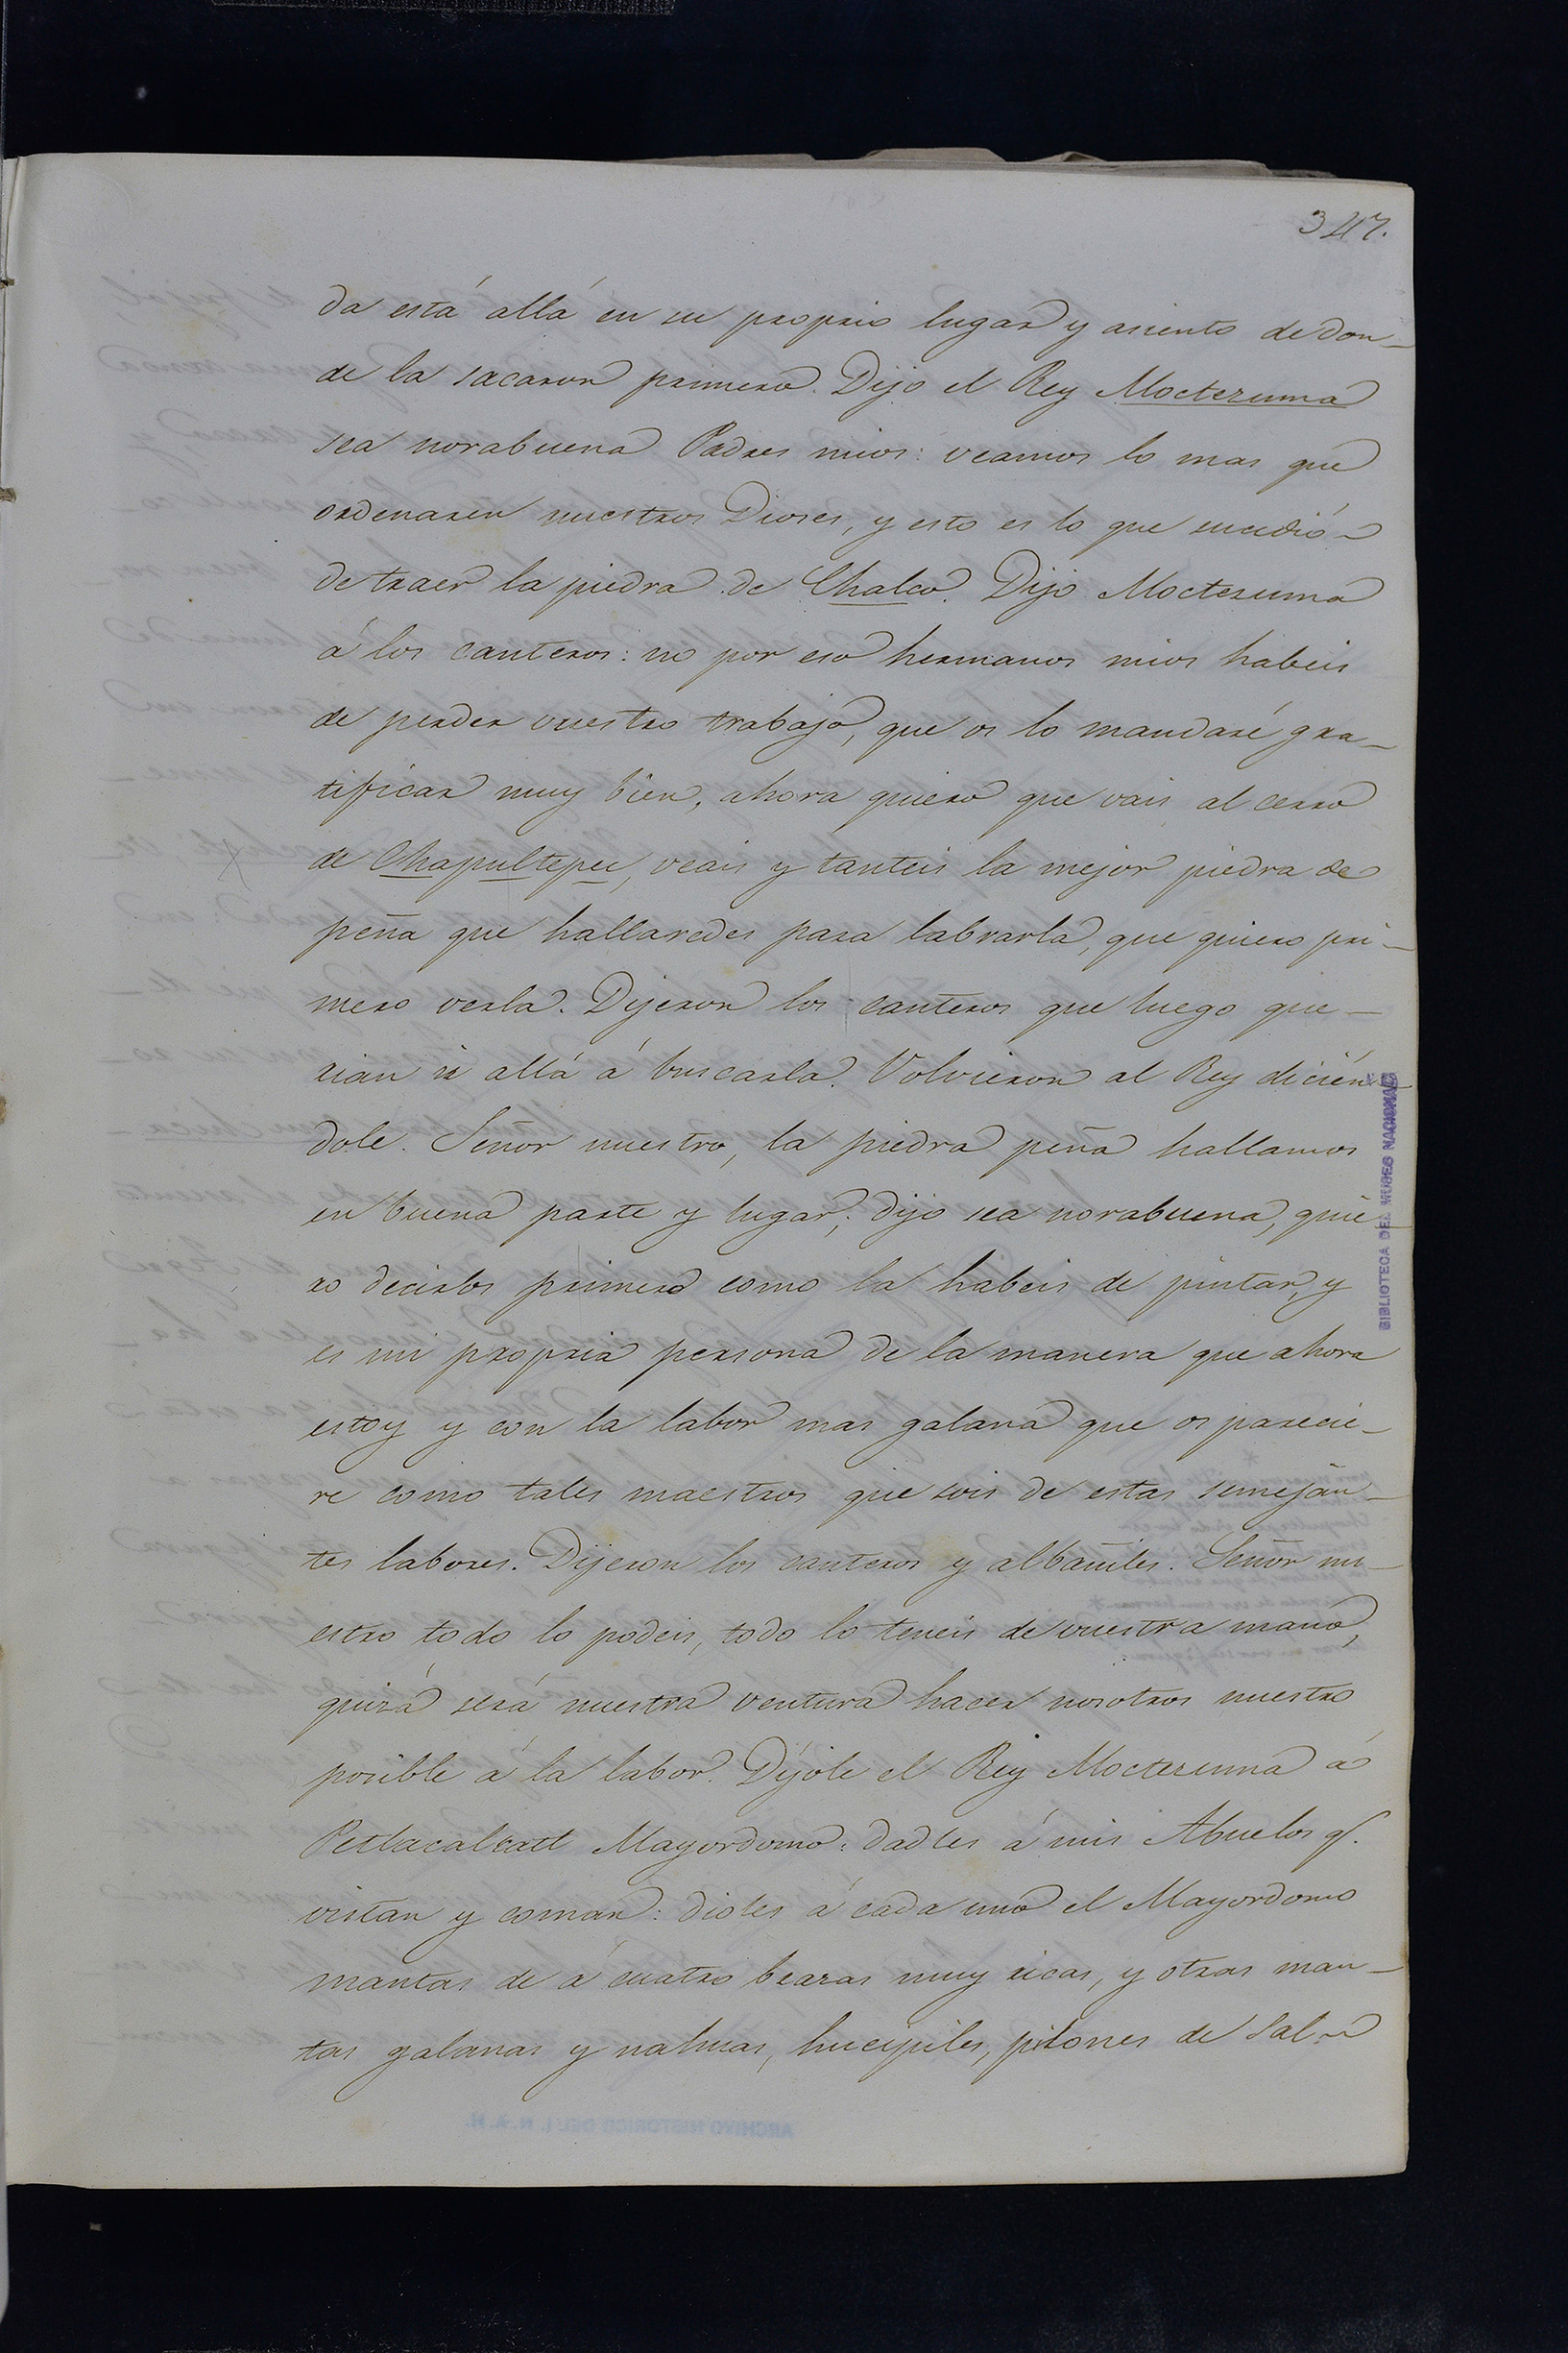 347.
da está allá en su proprio lugar y asiento de don-
de la sacaron primero. Dijo el Rey Moctezuma
sea norabuena Padres mios: veamos lo mas que
ordenaren nuestros Dioses, y esto es lo que sucedió
de traer la piedra de Chalco. Dijo Moctezuma
á los canteros: no por eso hermanos mios habeis
de perder vuestro trabajo, que os lo mandaré gra-
tificar muy bien, ahora quiero que vais al cerro
de Chapultepec, veais y tanteis la mejor piedra de
peña que hallaredes para labrarla, que quiero pri-
mero verla. Dijeron los canteros que luego que-
rian ir allá á buscarla. Volvieron al Rey dicien-
dole. Señor nuestro, la piedra peña hallamos
en buena parte y lugar; dijo sea norabuena, quie
ro decirlos primero como la habeis de pintar, y
es mi propria persona de la manera que ahora
estoy y con la labor mas galana que os parecie-
re como tales maestros que sois de estas semejan-
tes labores. Dijeron los canteros y albañiles. Señor nu-
estro todo lo podeis, todo lo teneis de vuestra mano,
quizá será nuestra ventura hacer nosotros nuestro
posible á la labor. Díjole el Rey Moctezuma á
Petlacalcatl Mayordomo: dadles á mis Abuelos q.
vistan y coman: dioles á cada uno el Mayordomo
mantas de á cuatro brazas muy ricas, y otras man-
tas galanas y nahuas, hueipiles, pilones de sal
BIBLIOTECA DEL MUSEO NACIONAL
ARCHIVO HISTORICO DEL I. N. A. H.